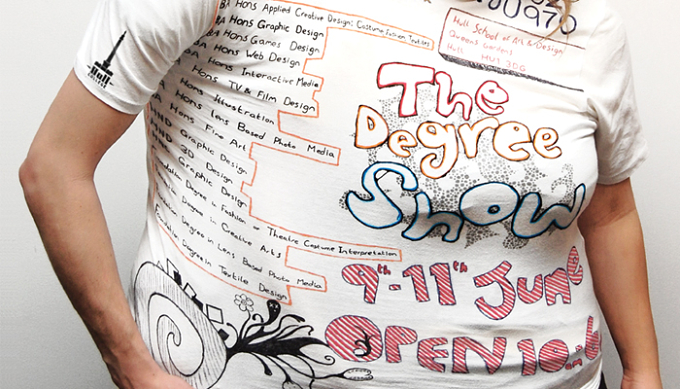 Hull
COLLEGE
BA Hons Applied Creative Design: Costume Fashion Textiles
BA Hons Graphic Design
BA Hons Games Design
BA Hons Web Design
Hons Interactive Media
Hons TV & Film Design
BA Hons Illustration
BA Hons Lens Based Photo Media
Hons Fine Art
HND Graphic Design
HND 3D Design
Graphic Design
Foundation Degree in Fashion or Theatre Costume Interpretation
Degree in Creative Arts
Degree in Lens Based Photo Media
Foundation Degree in Textile Design
00970
Hull School of Art & Design
Queens Gardens
Hull HU1 3DG
The
Degree
Show
9th-11th June
OPEN 10am